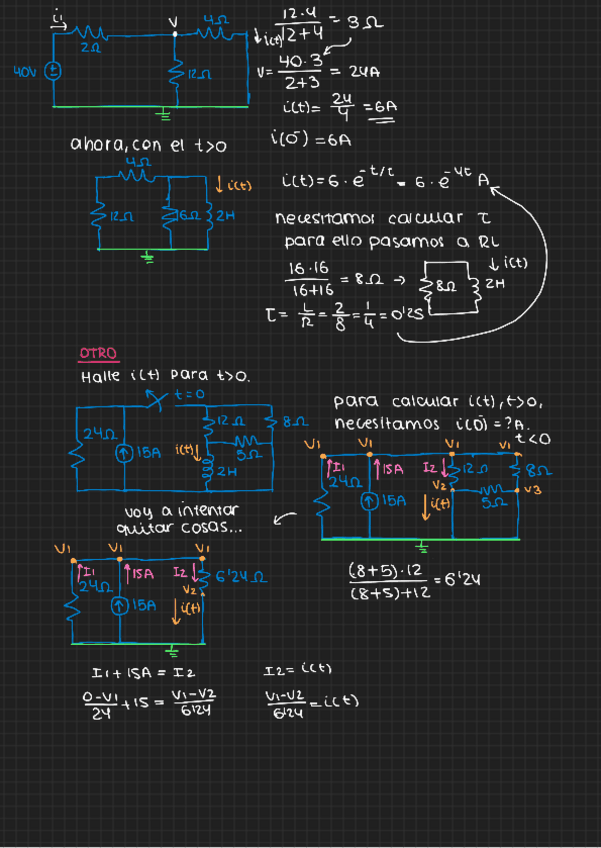 i₁
2Ω
V
4Ω
12Ω
40V
12·4 / 12+4 = 3Ω
↓i(t)
V= 40·3 / 2+3 = 24A
i(t)= 24/4 = 6A
i(0⁻)=6A
ahora, con el t>0
4Ω
12Ω
16Ω
2H
↓ i(t)
i(t)=6·e^-t/τ = 6·e^-4t A
necesitamos calcular τ
para ello pasamos a RL
16·16 / 16+16 = 8Ω →
8Ω
2H
↓ i(t)
τ= L/R = 2/8 = 1/4 = 0'25
OTRO
Halle i(t) para t>0.
t=0
24Ω
15A
12Ω
8Ω
5Ω
i(t)↓
2H
para calcular i(t), t>0,
necesitamos i(0⁻) =?A.
t<0
V1
V1
V1
V1
↑I1
↑15A
I2↓
24Ω
15A
12Ω
8Ω
V2
V3
5Ω
↓i(t)
voy a intentar
quitar cosas...
←
V1
V1
V1
↑I1
↑15A
I2↓
24Ω
15A
6'24Ω
V2
↓i(t)
(8+5)·12 / (8+5)+12 = 6'24
I1+15A = I2
I2= i(t)
0-V1 / 24 +15 = V1-V2 / 6'24
V1-V2 / 6'24 = i(t)